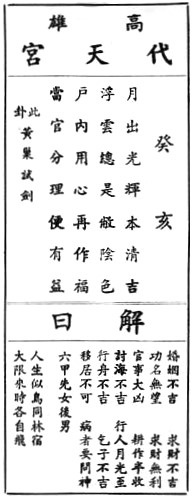 高雄
代天宮
癸亥
月出光輝本清吉
浮雲總是蔽陰色
戶內用心再作福
當官分理便有益
此卦黃巢試劍
解曰
婚姻不吉　求財不吉
功名無望　求財無利
官事大凶　耕作半收
討海不吉　行人月光至
行舟不吉　乞子不吉
移居不可　病者要問神
六甲先女後男
人生似鳥同林宿
大限來時各自飛